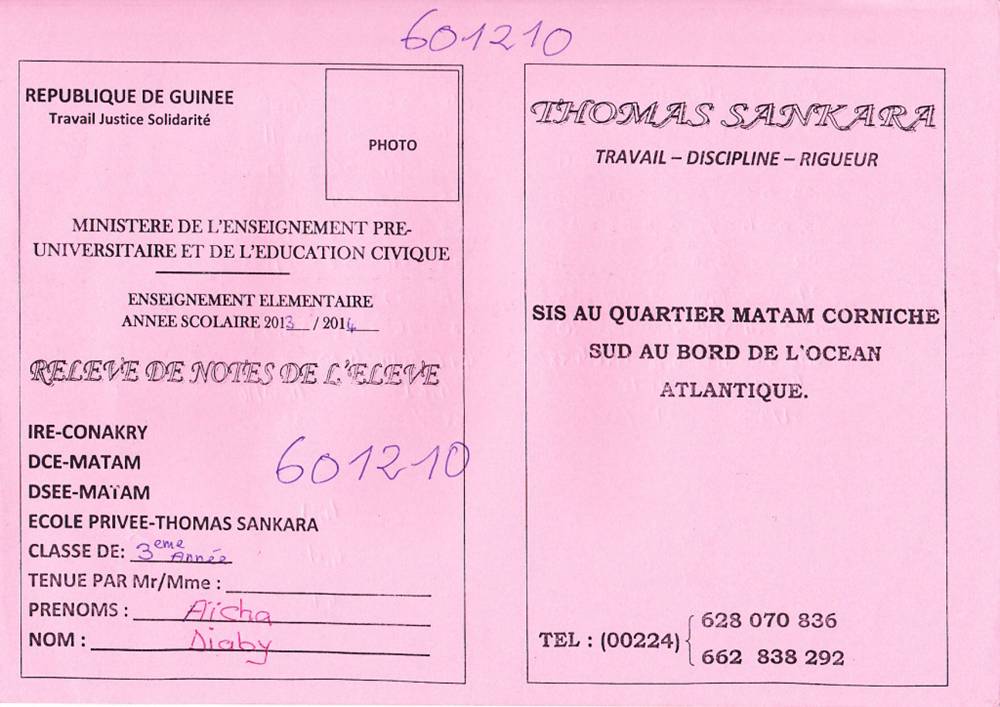 601210
REPUBLIQUE DE GUINEE
Travail Justice Solidarité
PHOTO
MINISTERE DE L'ENSEIGNEMENT PRE-
UNIVERSITAIRE ET DE L'EDUCATION CIVIQUE
ENSEIGNEMENT ELEMENTAIRE
ANNEE SCOLAIRE 2013 / 2014
RELEVE DE NOTES DE L'ELEVE
IRE-CONAKRY
601210
DCE-MATAM
DSEE-MATAM
ECOLE PRIVEE-THOMAS SANKARA
CLASSE DE: 3eme Année
TENUE PAR Mr/Mme :
PRENOMS : Aïcha
NOM : Diaby
THOMAS SANKARA
TRAVAIL – DISCIPLINE – RIGUEUR
SIS AU QUARTIER MATAM CORNICHE
SUD AU BORD DE L'OCEAN
ATLANTIQUE.
TEL : (00224)
628 070 836
662 838 292